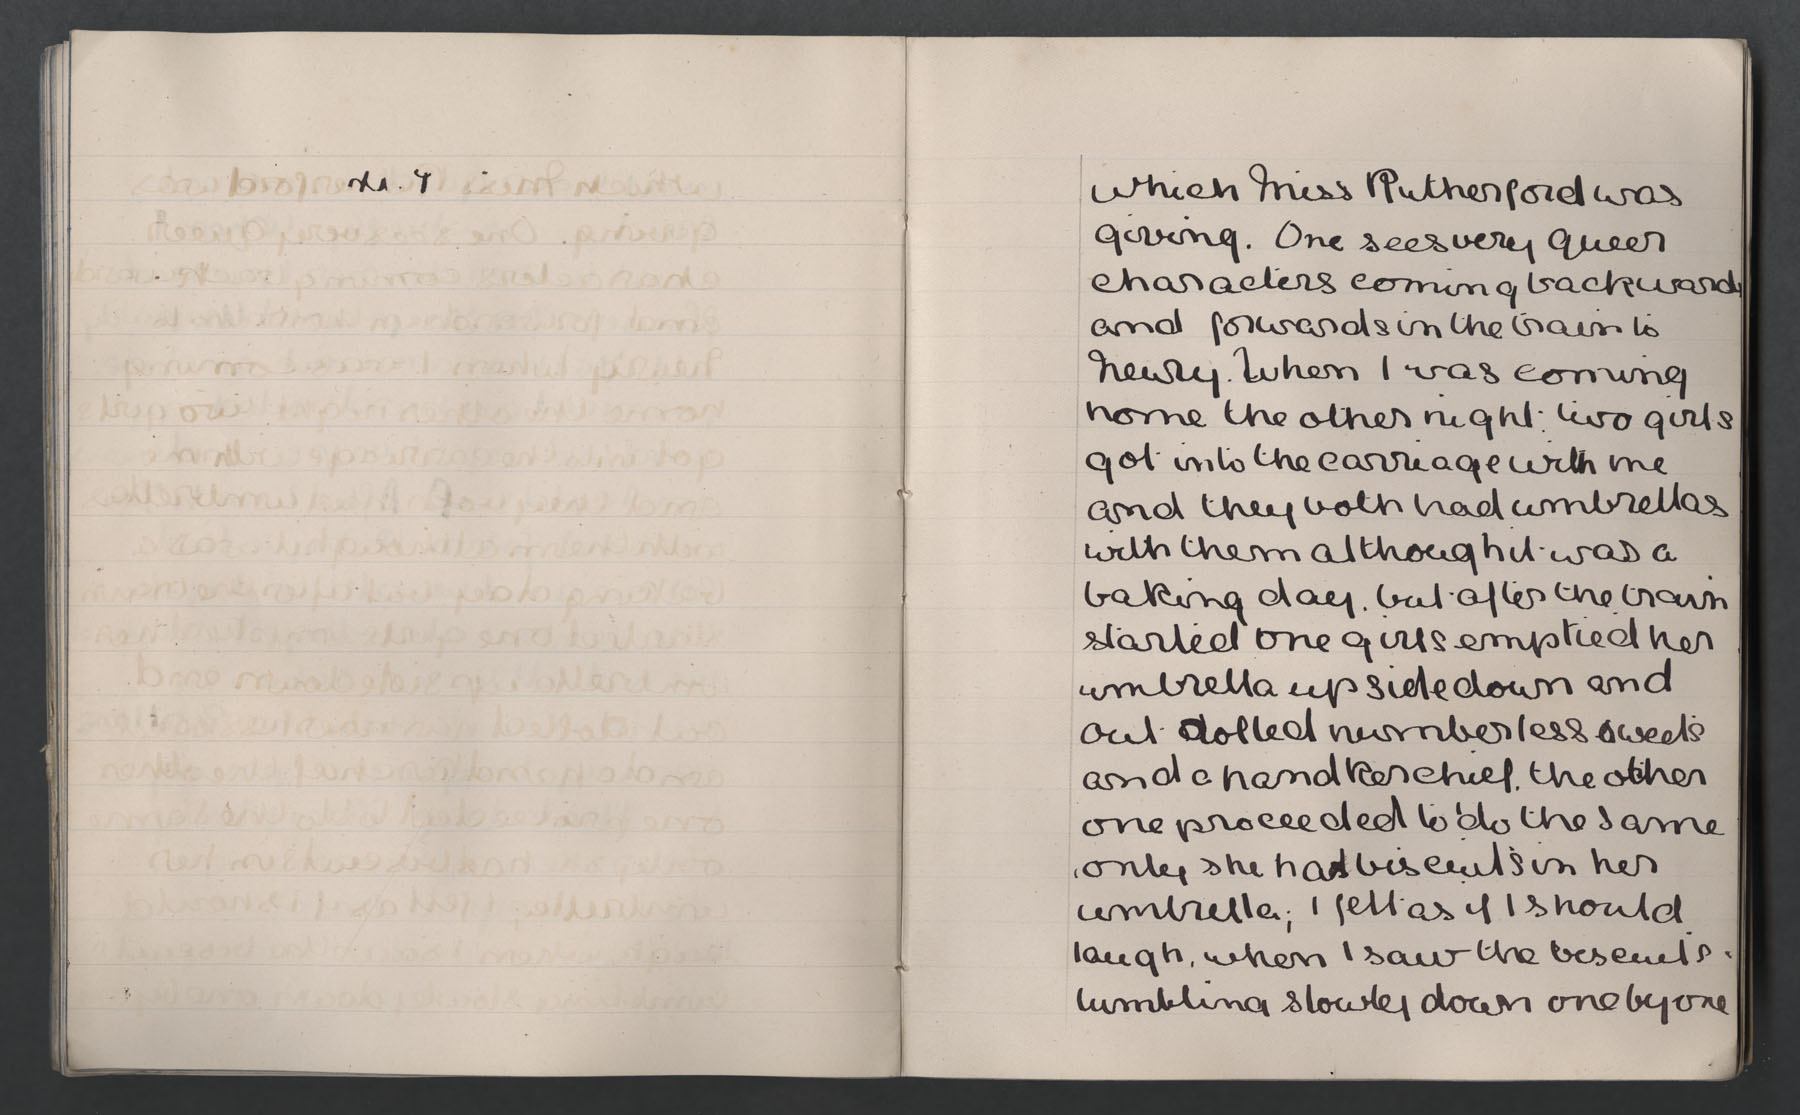 No. 4
which Miss Rutherford was
giving. One sees very queer
characters coming backwards
and forwards in the train to
Newry. When I was coming
home the other night. two girls
got into the carriage with me
and they both had umbrellas
with them although it was a
baking day. but after the train
started one girls emptied her
umbrella upside down and
out dolled numberless sweets
and a handkerchief. the other
one proceeded to do the same
only she had biscuits in her
umbrella; I felt as if I should
laugh, when I saw the biscuits.
tumbling slowly down one by one